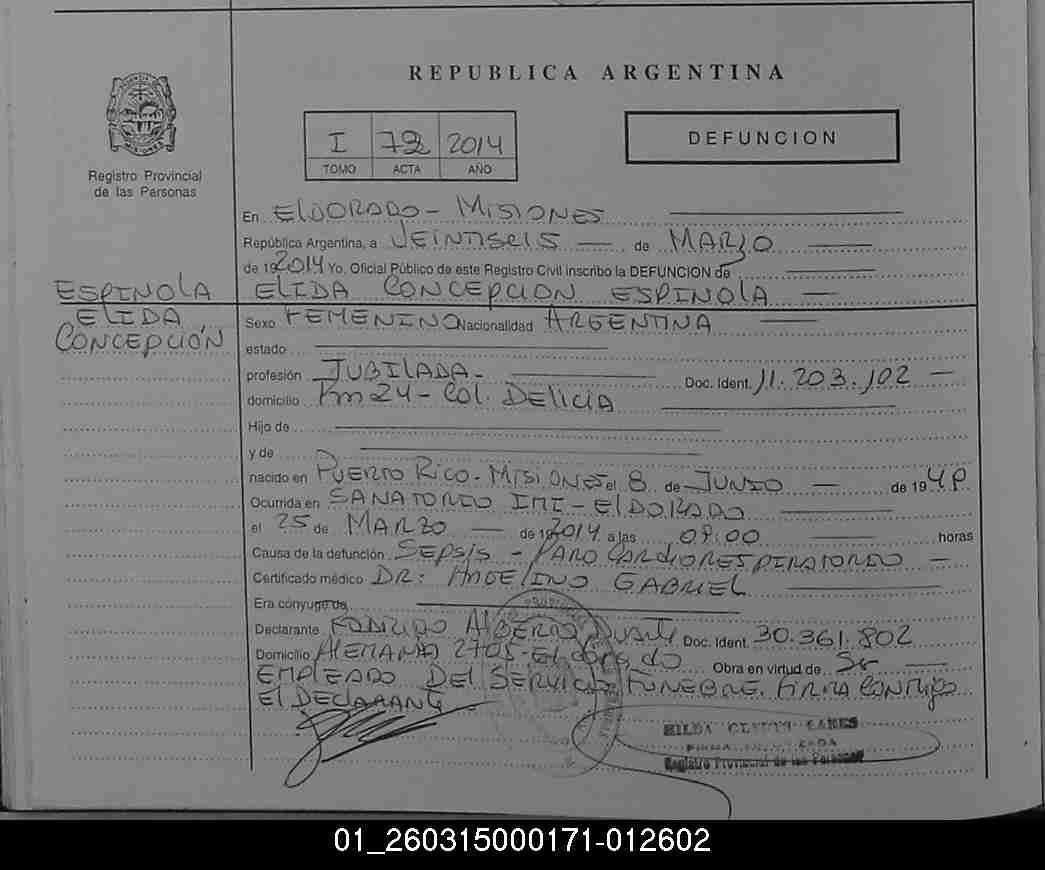 REPUBLICA ARGENTINA
I 2014
TOMO ACTA AÑO
DEFUNCION
Registro Provincial
de las Personas
En ELDORADO - MISIONES
República Argentina, a VEINTISEIS de MARZO
de 19 2014 Yo, Oficial Público de este Registro Civil inscribo la DEFUNCION de
ESPINOLA
ELIDA
CONCEPCIÓN
ELIDA CONCEPCION ESPINOLA
Sexo FEMENINO Nacionalidad ARGENTINA
estado
profesión JUBILADA - Doc. Ident. 11.203.102
domicilio Km 24 - Col. DELICIA
Hijo de
y de
nacido en PUERTO RICO - MISIONES el 8 de JUNIO de 19
Ocurrida en SANATORIO IMI - ELDORADO
el 25 de MARZO de 19 2014 a las horas
Causa de la defunción SEPSIS - PARO CARDIORESPIRATORIO
Certificado médico DR: GABRIEL
Era cónyuge de
Declarante RODRIGO ALBERTO DUARTE Doc. Ident. 30.361.802
Domicilio ALEMANIA 2705 - Eldorado Obra en virtud de Sr
EMPLEADO DEL SERVICIO FUNEBRE. FIRMA CONMIGO
El DECLARANTE
HILDA
Registro Provincial de las Personas
01_260315000171-012602